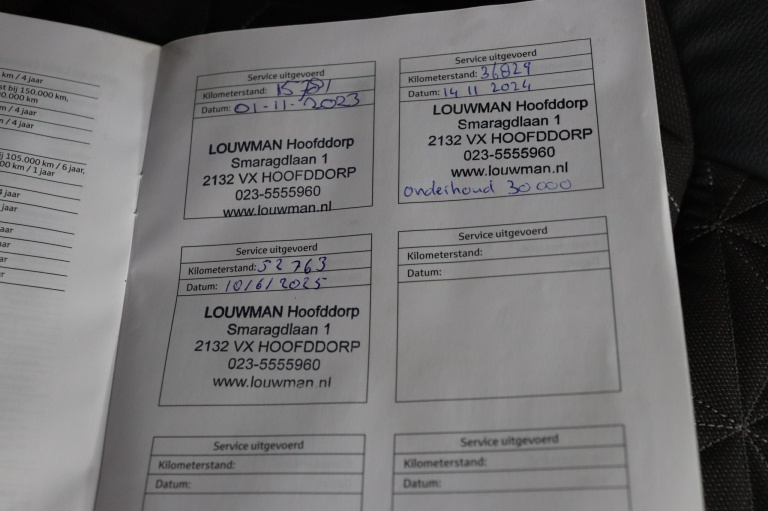 km / 4 jaar
st bij 150.000 km,
0.000 km
m / 4 jaar
m / 4 jaar
ij 105.000 km / 6 jaar,
00 km / 1 jaar
jaar
jaar
jaar
jaar
jaar
jaar
Service uitgevoerd
Kilometerstand:
Datum: 01-11-2023
LOUWMAN Hoofddorp
Smaragdlaan 1
2132 VX HOOFDDORP
023-5555960
www.louwman.nl
Service uitgevoerd
Kilometerstand: 36829
Datum: 14 11 2024
LOUWMAN Hoofddorp
Smaragdlaan 1
2132 VX HOOFDDORP
023-5555960
www.louwman.nl
onderhoud 30000
Service uitgevoerd
Kilometerstand: 52763
Datum: 10/6/2025
LOUWMAN Hoofddorp
Smaragdlaan 1
2132 VX HOOFDDORP
023-5555960
www.louwman.nl
Service uitgevoerd
Kilometerstand:
Datum:
Service uitgevoerd
Kilometerstand:
Datum:
Service uitgevoerd
Kilometerstand:
Datum: